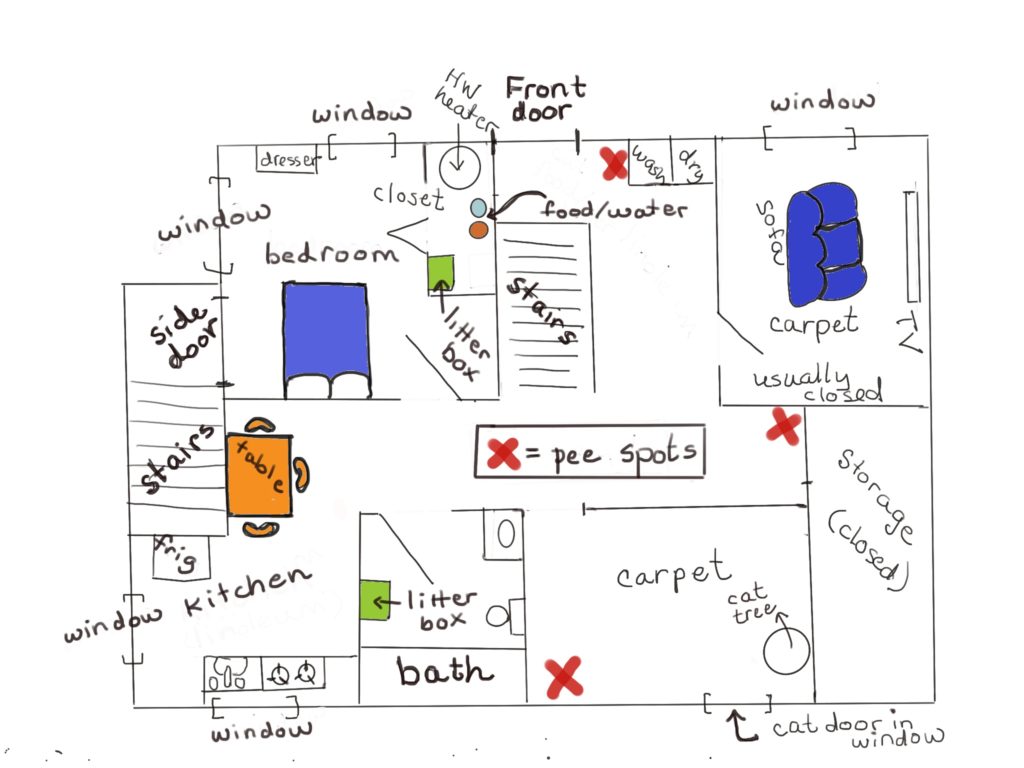 HW
heater
Front
door
window
window
dresser
wash
dry
closet
food/water
window
bedroom
sofa
stairs
side
door
litter
box
carpet
TV
usually
closed
stairs
table
= pee spots
storage
(closed)
frig
kitchen
carpet
litter
box
cat
tree
window
bath
window
cat door in
window